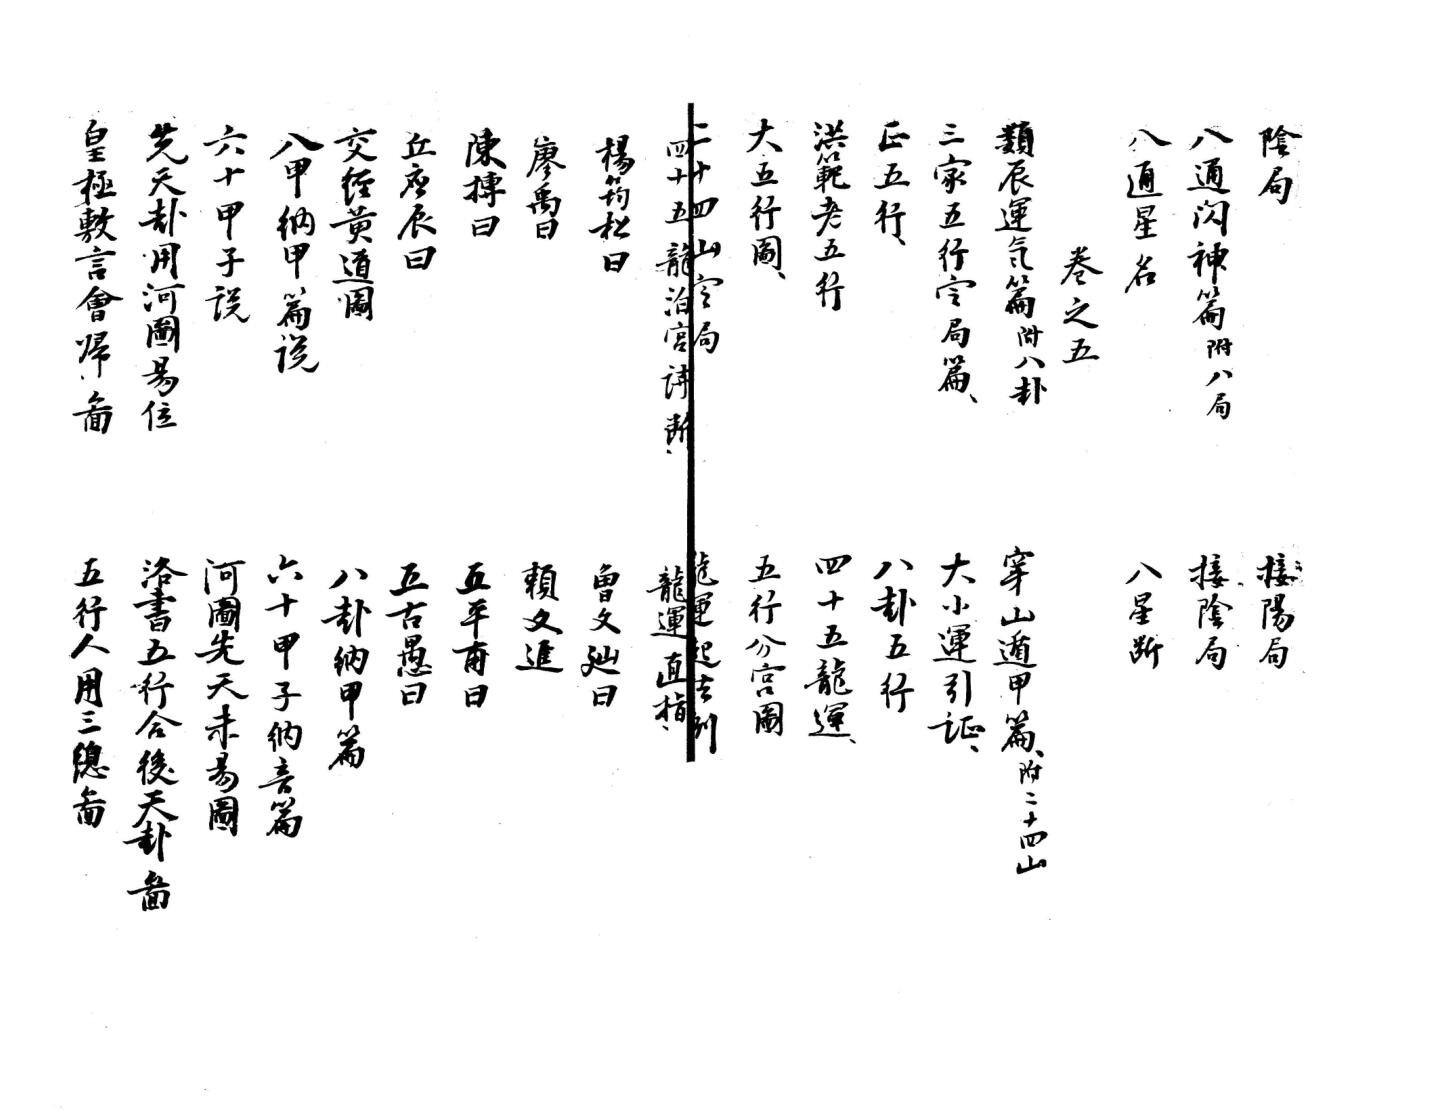 陰局
接陽局
八通閃神篇附八局
接陰局
八通星名
八星斷
卷之五
類辰運氣篇附八卦
穿山遁甲篇、附二十四山
三家五行定局篇、
大小運引証、
正五行、
八卦五行
洪範老五行
四十五龍運、
大五行圖、
五行分宮圖
二十四山定局
龍運起吉例
四十五龍泊宮詩斷、
龍運直指、
楊筠松曰
曾文辿曰
廖禹曰
賴文進
陳摶曰
五平甫曰
丘應辰曰
五古愚曰
交經黃道圖
八卦納甲篇
八甲納甲篇説
六十甲子納音篇
六十甲子説
河圖先天未易圖
先天卦用河圖易位
洛書五行合後天卦畐
皇極敷言會歸、畐
五行人用三總畐